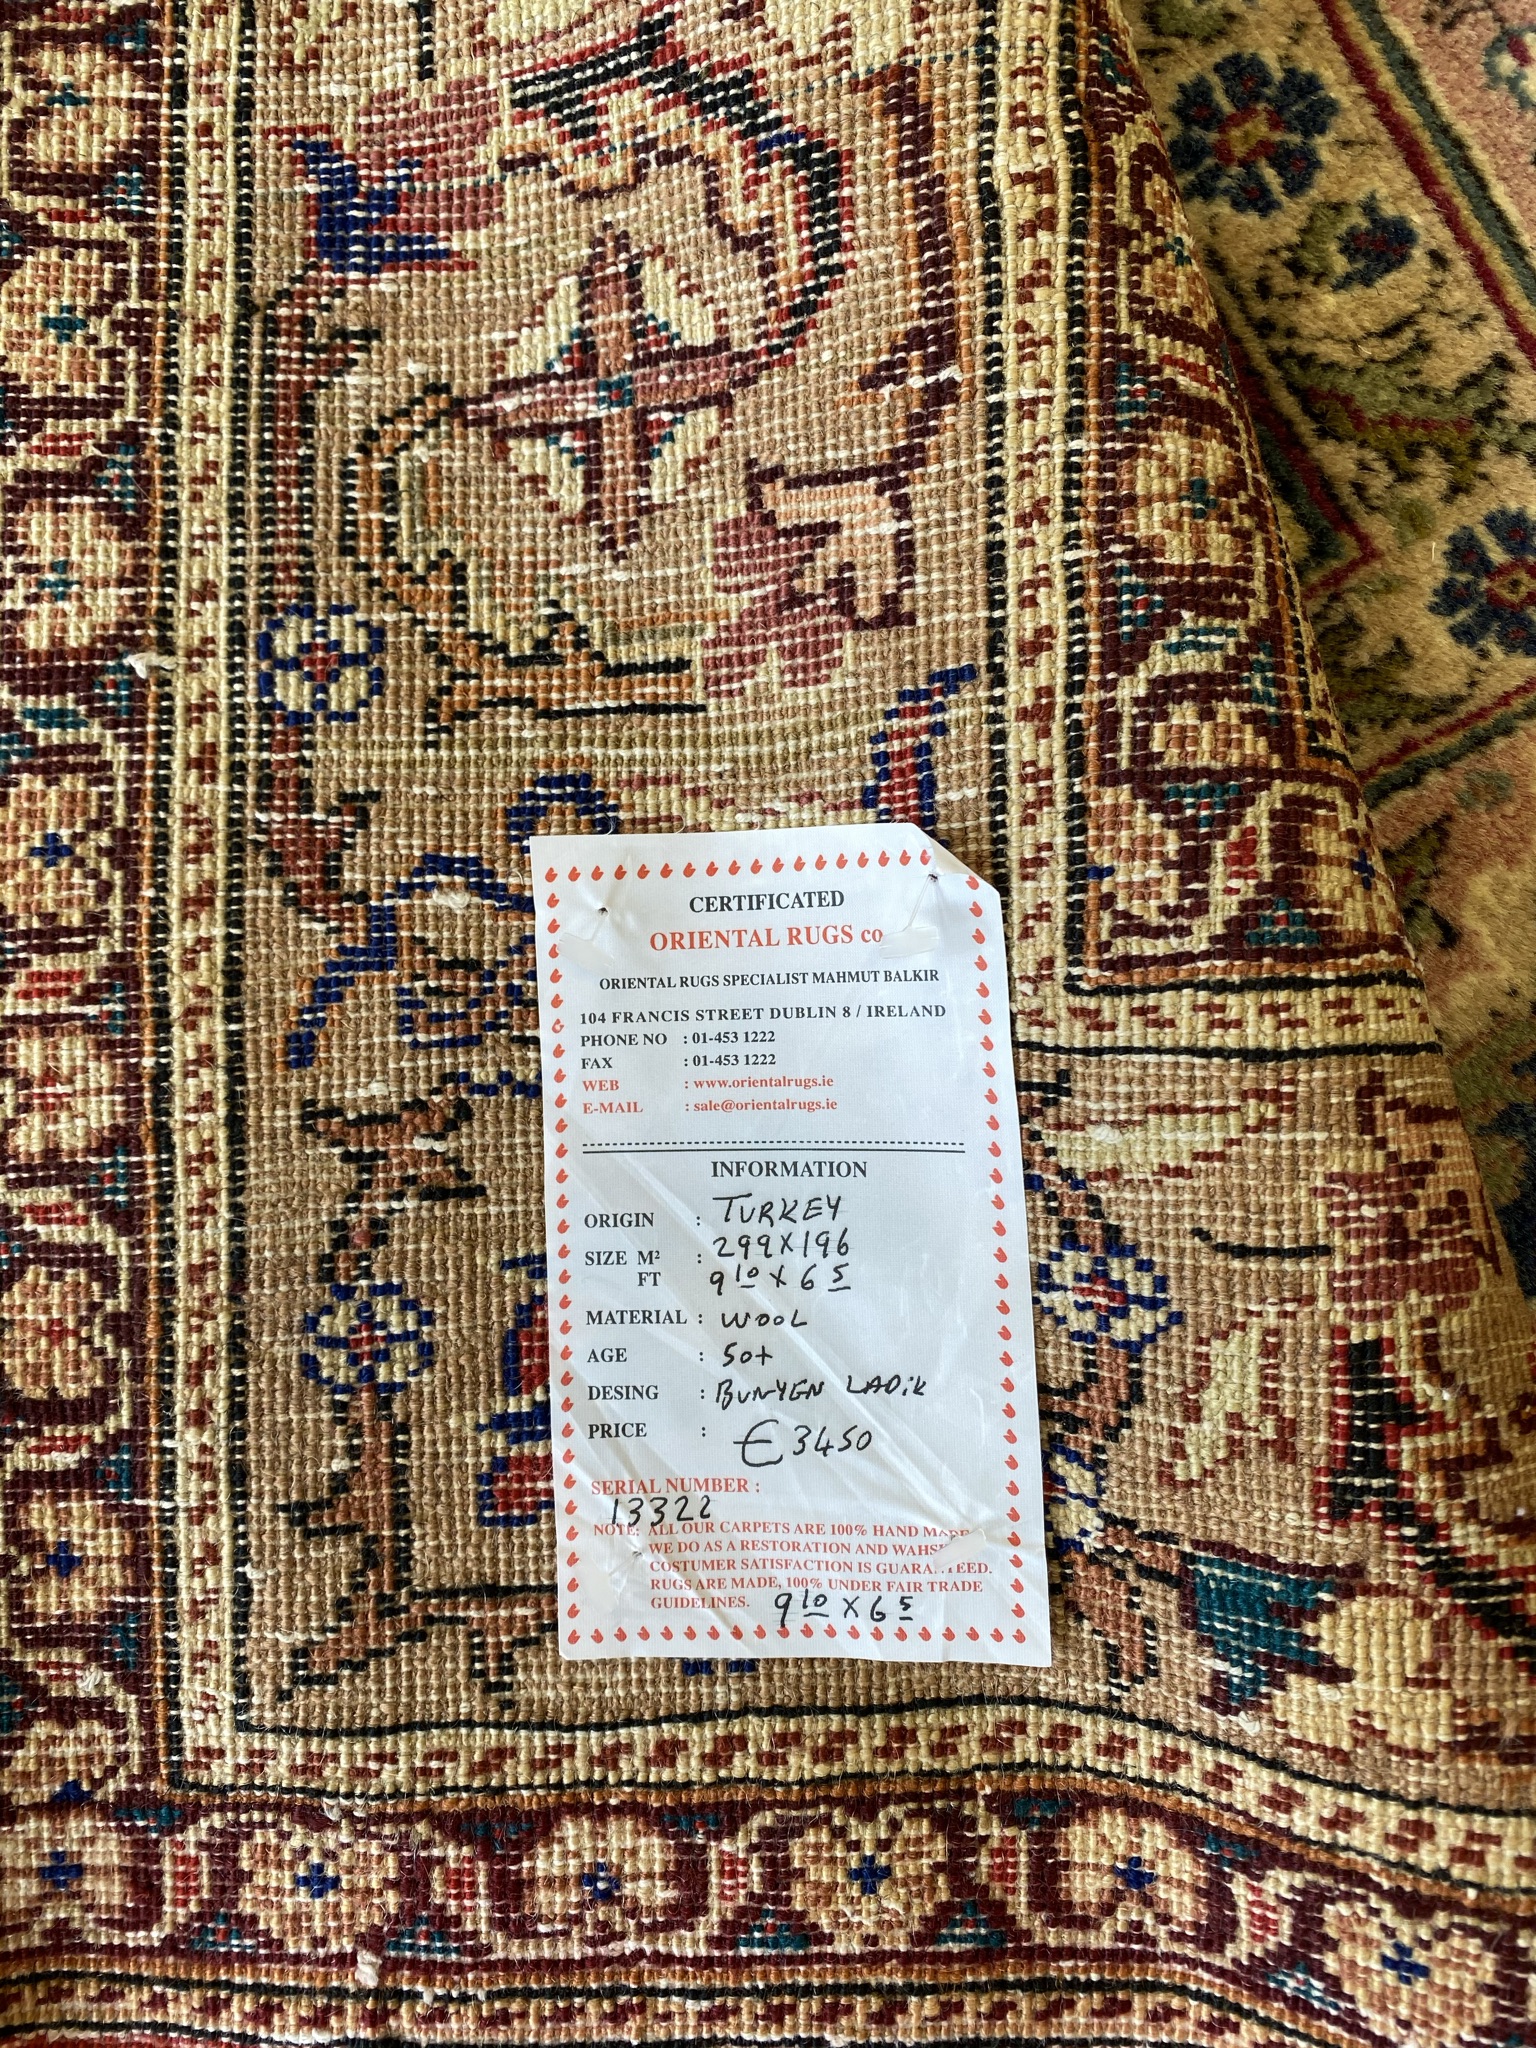 CERTIFICATED
ORIENTAL RUGS co
ORIENTAL RUGS SPECIALIST MAHMUT BALKIR
104 FRANCIS STREET DUBLIN 8 / IRELAND
PHONE NO : 01-453 1222
FAX : 01-453 1222
WEB : www.orientalrugs.ie
E-MAIL : sale@orientalrugs.ie
INFORMATION
ORIGIN : TURKEY
SIZE M² : 299X196
FT 9 10 X 6 5
MATERIAL : WOOL
AGE : 50+
DESING : BUNYEN LADiK
PRICE : € 3450
SERIAL NUMBER :
13322
NOTE: ALL OUR CARPETS ARE 100% HAND MADE
WE DO AS A RESTORATION AND
COSTUMER SATISFACTION IS GUARANTEED.
RUGS ARE MADE, 100% UNDER FAIR TRADE
GUIDELINES. 9 10 X 6 5